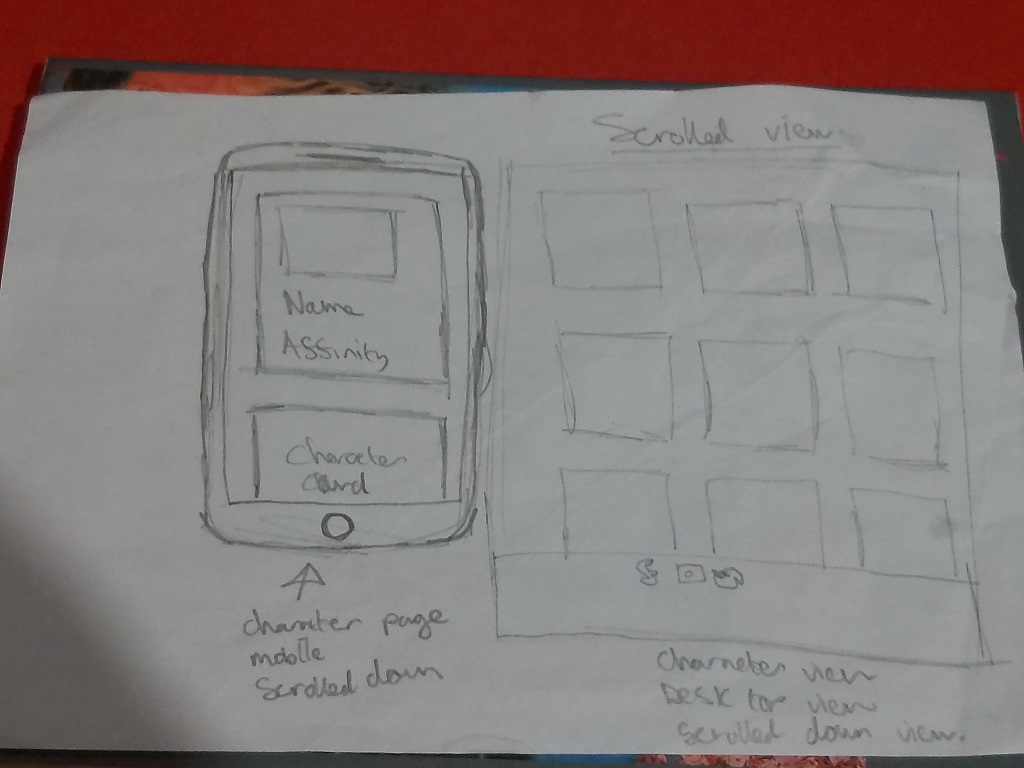 Scrolled view
Name
Affinity
Character
Card
Character page
mobile
Scrolled down
Character view
Desktop view
scrolled down view.